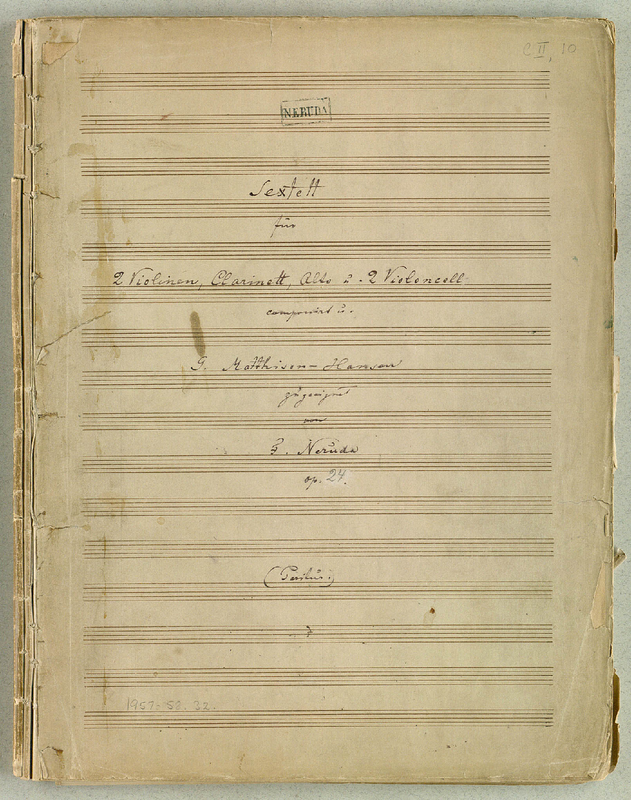 C II, 10
NERUDA
Sextett
für
2 Violinen, Clarinett, Alto u. 2 Violoncell
componirt u.
G. Matthison-Hansen
zugeeignet
von
F. Neruda
op. 24.
(Partitur)
1957-58. 32.